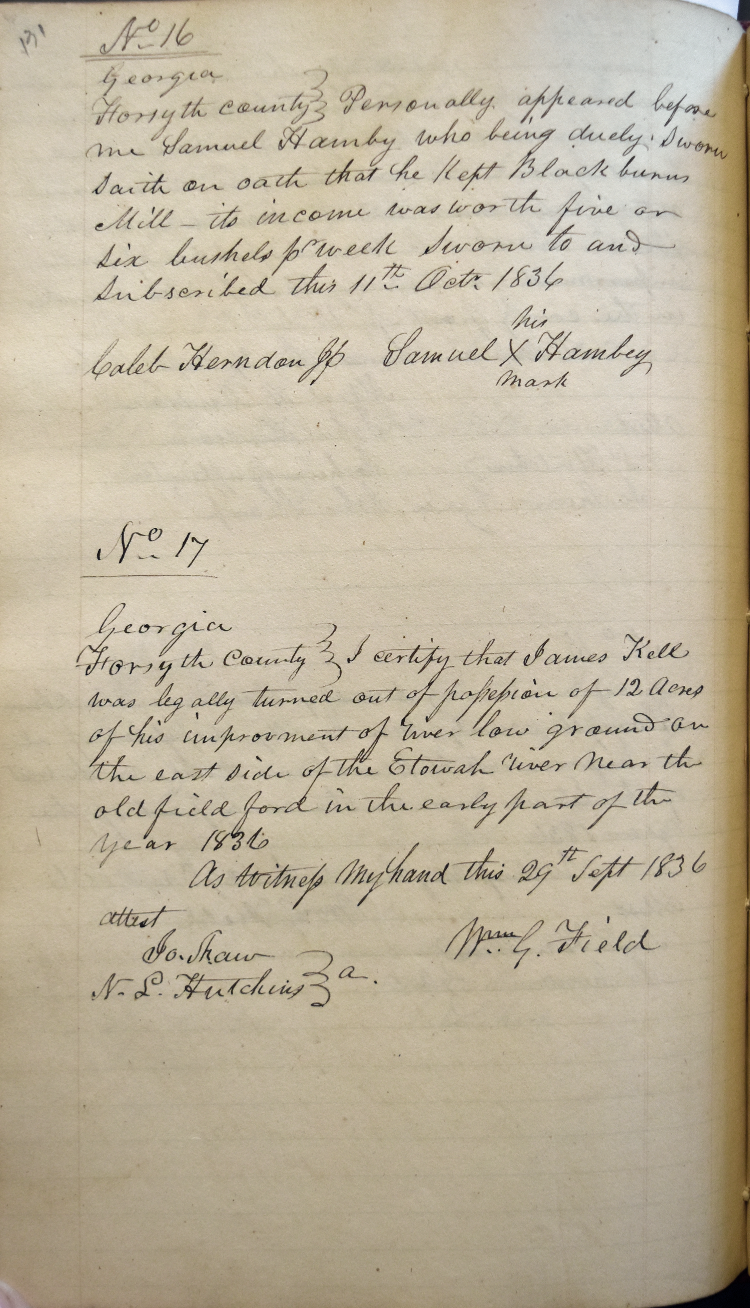 131
No. 16
Georgia
Forsyth county } Personally appeared before
me Samuel Hamby who being duely Sworn
Saith on oath that he Kept Blackburns
Mill - its income was worth five or
Six bushels pr week Sworn to and
Subscribed this 11th Octr 1836
his
Caleb Herndon JP Samuel X Hambey
mark
No. 17
Georgia
Forsyth county } I certify that James Kell
was legally turned out of possession of 12 Acres
of his improvment of river low ground on
the east side of the Etowah river near the
old field ford in the early part of the
year 1836
As Witness My hand this 29th Sept 1836
attest
Jo. Shaw Wm. G. Field
N. L. Hutchins } a.